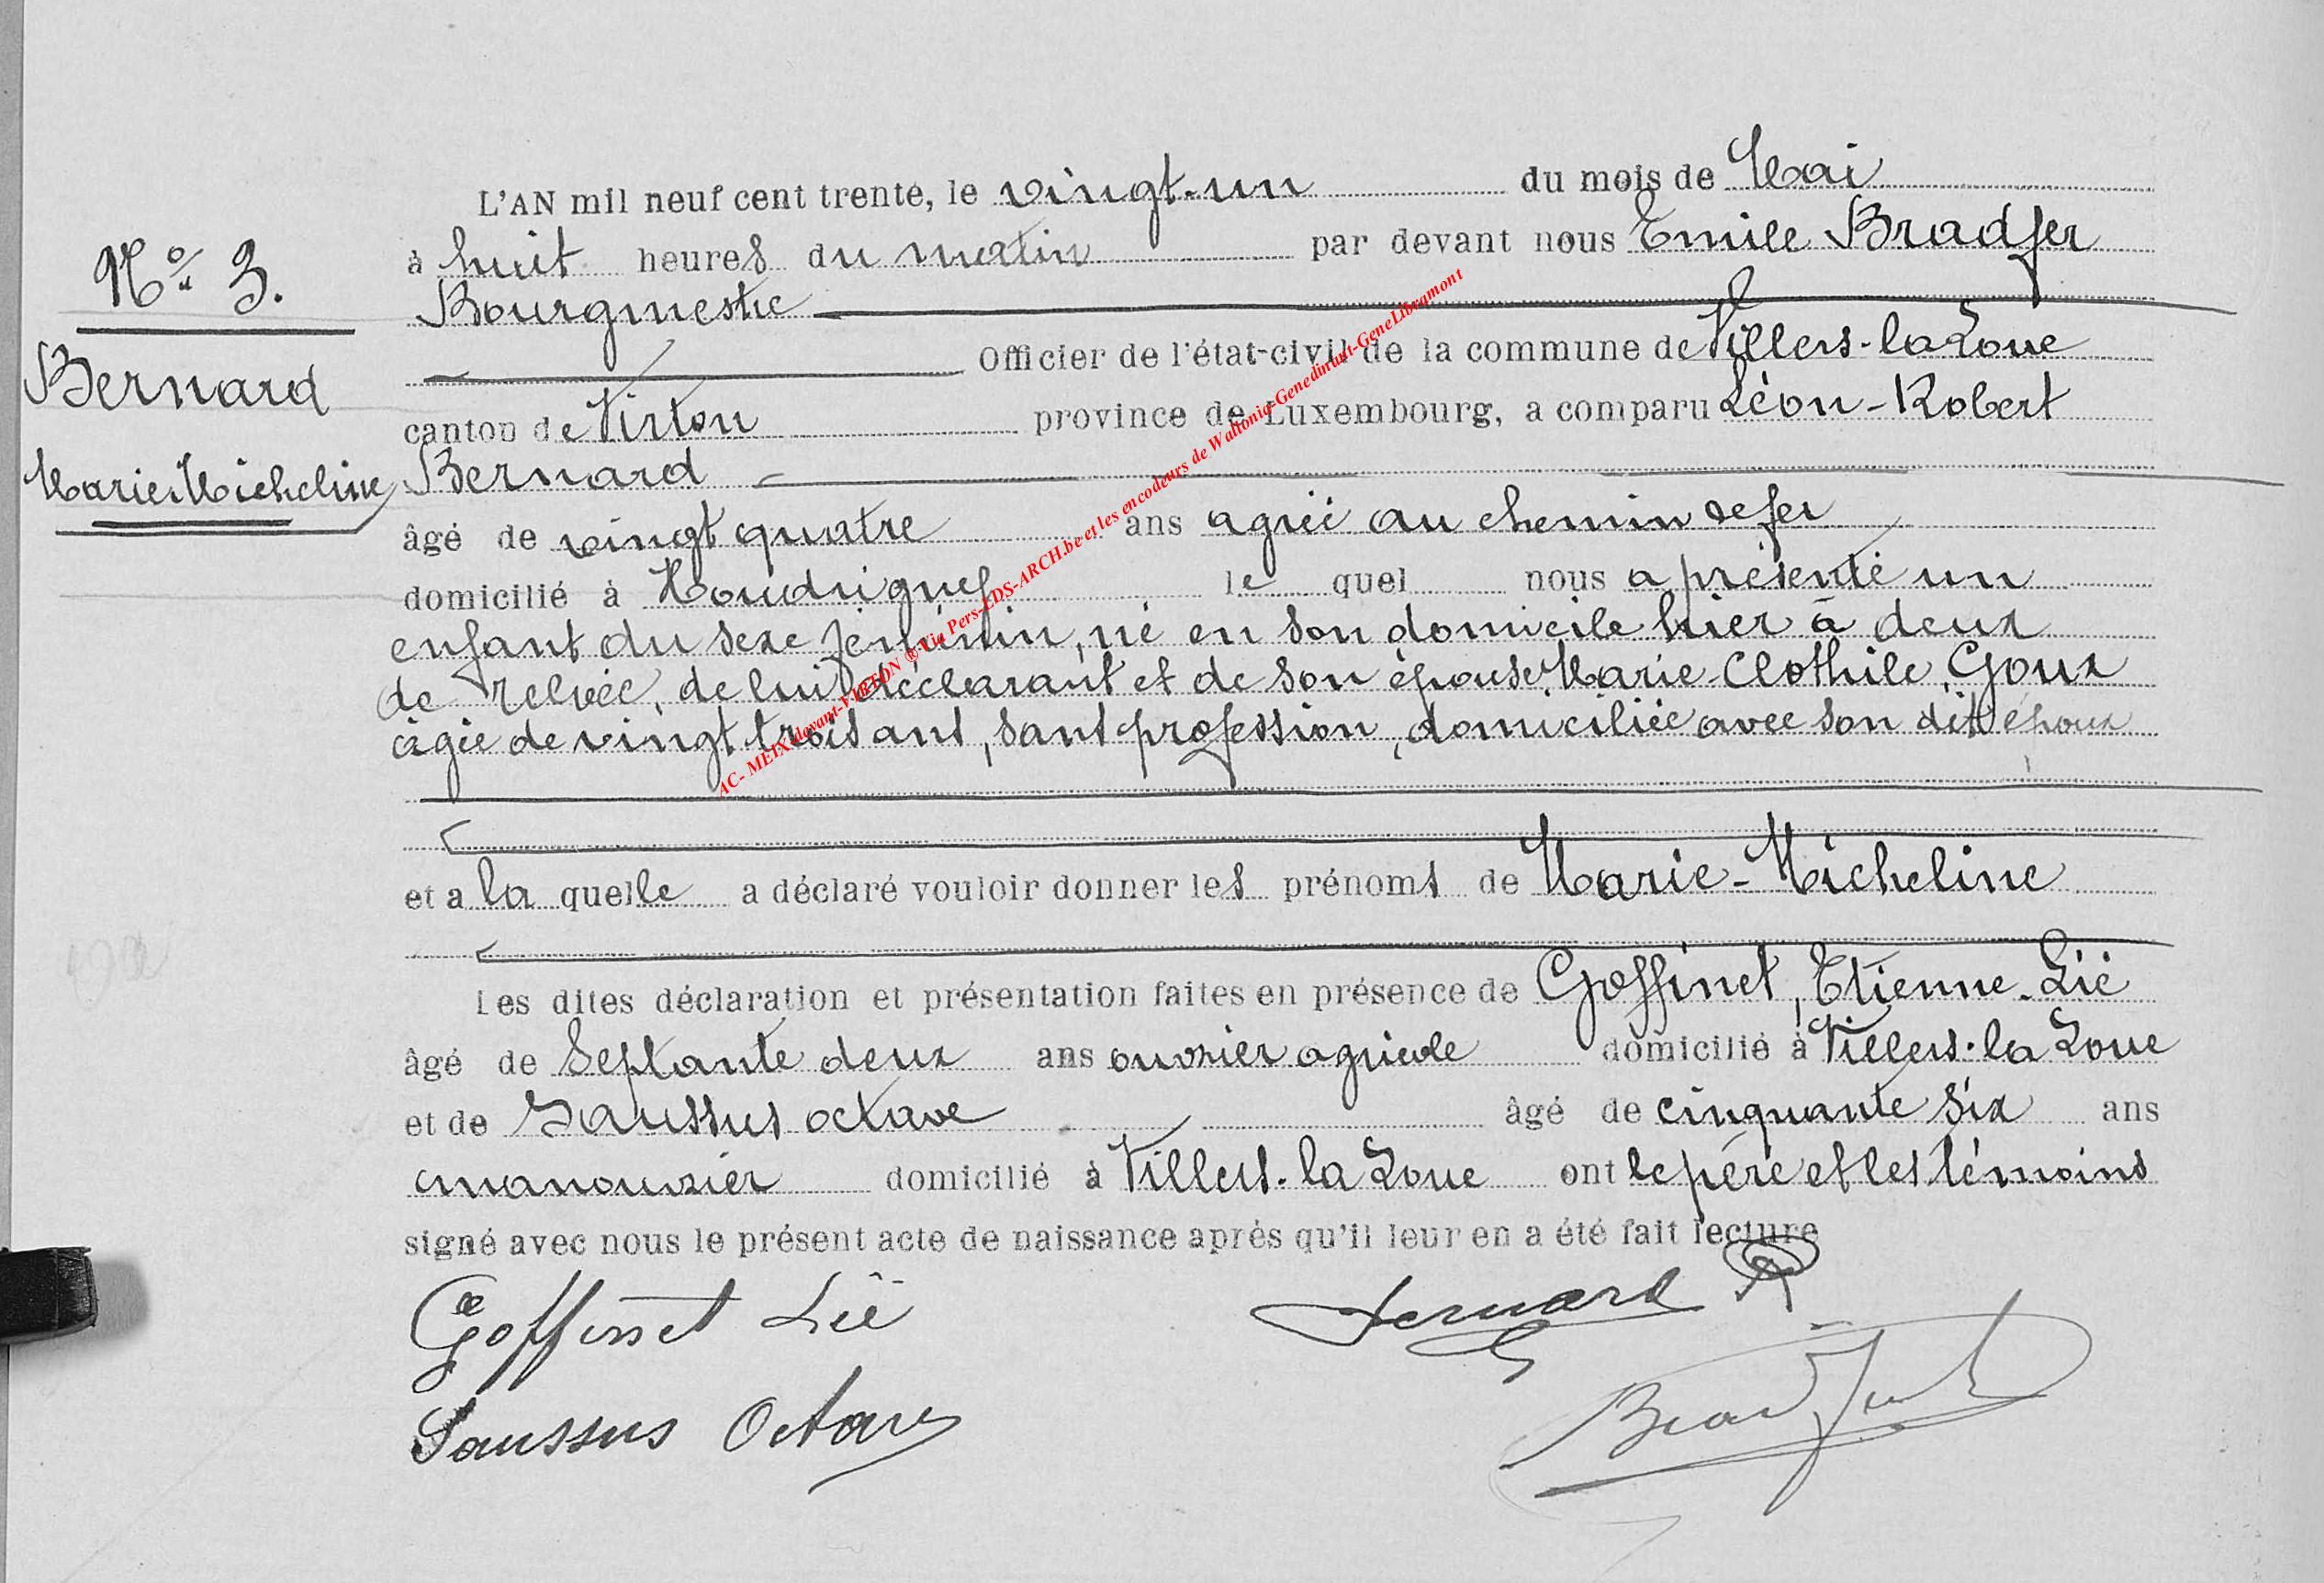 L'AN mil neuf cent trente, le vingt-un du mois de Mai
à huit heures du matin par devant nous Emile Bradfer
Bourgmestre
Officier de l'état-civil de la commune de Villers-la Loue
canton de Virton province de Luxembourg, a comparu Léon-Robert
Bernard
âgé de vingt quatre ans agréé au chemin de fer
domicilié à Houdrigny le quel nous a présenté un
enfant du sexe féminin, né en son domicile hier à deux
de relvée, de lui déclarant et de son épouse Marie-Clothile Goux
âgée de vingt trois ans, sans profession, domiciliée avec son dit époux
et a la quelle a déclaré vouloir donner les prénoms de Marie-Micheline
Les dites déclaration et présentation faites en présence de Goffinet, Etienne-Lié
âgé de Septante deux ans ouvrier agricole domicilié à Villers-la Loue
et de Saussus octave âgé de cinquante six ans
manouvrier domicilié à Villers-la Loue ont le père et les témoins
signé avec nous le présent acte de naissance après qu'il leur en a été fait lecture
Goffinet Lié
Bernard R
Saussus Octave
Bradfer
No 3.
Bernard
Marie Micheline
AC- MEIX-devant-VIRTON @ Via Pers-EDS-ARCH.be et les encodeurs de Wallonia-Genedinant-GeneLibramont